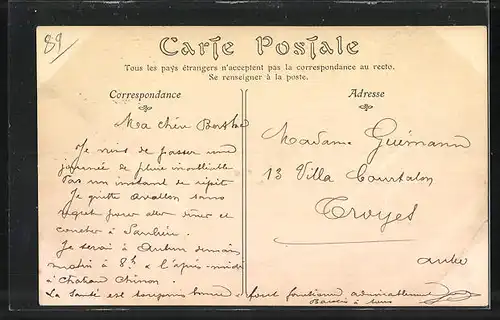 89
Carte Postale
Tous les pays étrangers n'acceptent pas la correspondance au recto.
Se renseigner à la poste.
Correspondance
Adresse
Ma chère Berthe
Je viens de passer une
journée de pluie inoubliable
Pas un instant de répit
Je quitte Avallon sans
regret pour aller dîner et
coucher à Saulieu.
Je serai à Autun demain
matin à 8h & l'après-midi
à Chateau Chinon.
La Santé est toujours bonne & tout fonctionne admirablement
Baisers à tous
Madame Guémann
13 Villa Courtalon
Troyes
Aube